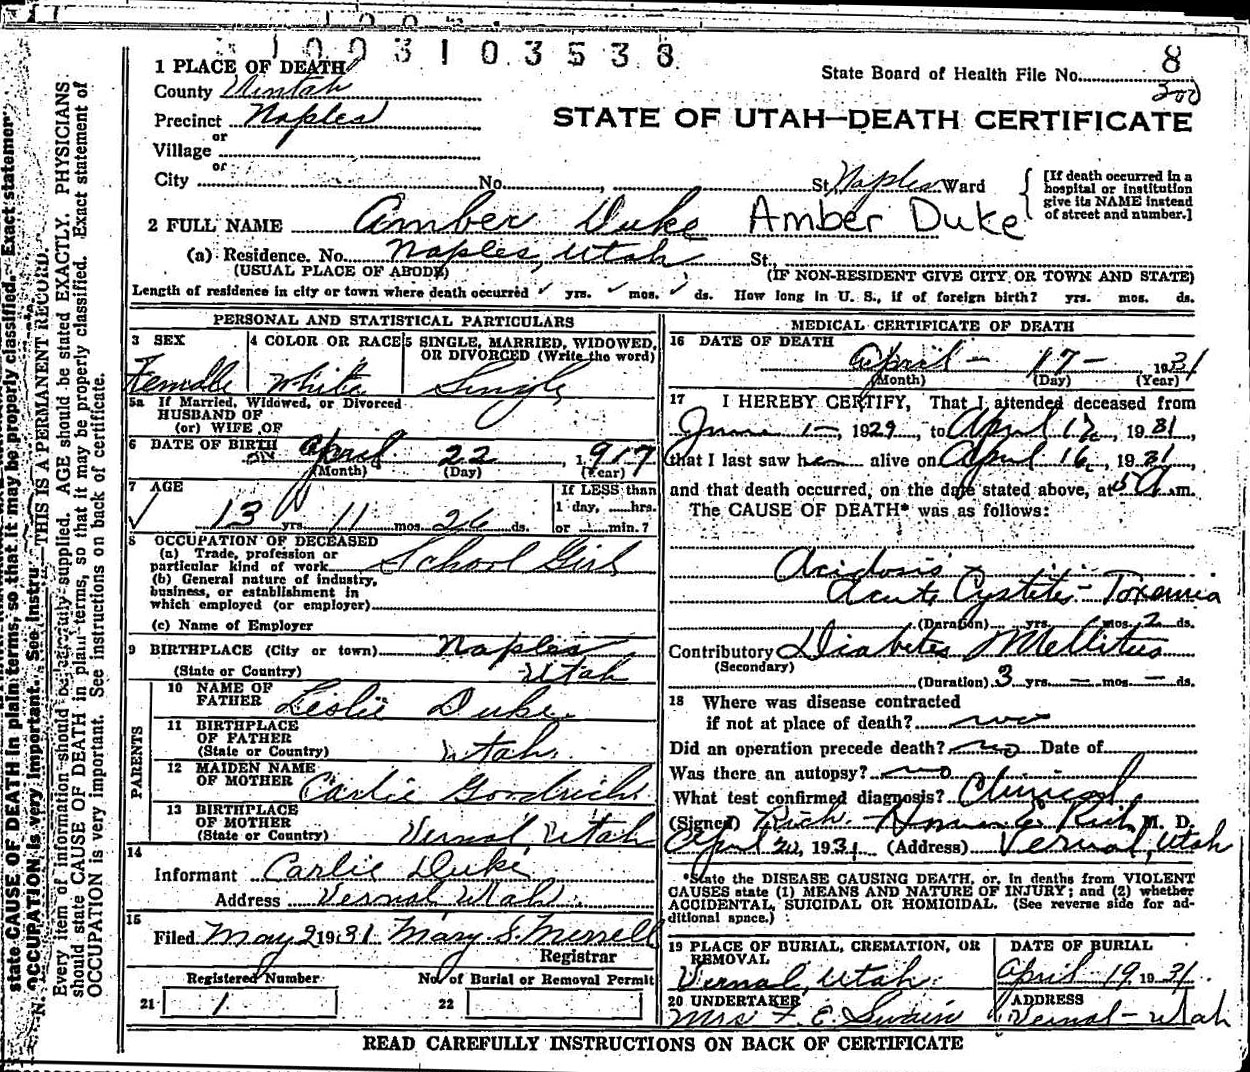 3 1 0 0 3 1 0 3 5 3 8
1 PLACE OF DEATH
County Uintah
State Board of Health File No. 8
300
Precinct Naples
STATE OF UTAH—DEATH CERTIFICATE
or
Village
or
City No. St. Naples Ward
[If death occurred in a hospital or institution give its NAME instead of street and number.]
2 FULL NAME Amber Duke Amber Duke
(a) Residence. No. Naples, Utah St.,
(USUAL PLACE OF ABODE) (IF NON-RESIDENT GIVE CITY OR TOWN AND STATE)
Length of residence in city or town where death occurred yrs. mos. ds. How long in U. S., if of foreign birth? yrs. mos. ds.
PERSONAL AND STATISTICAL PARTICULARS
3 SEX
Female
4 COLOR OR RACE
White
5 SINGLE, MARRIED, WIDOWED, OR DIVORCED (Write the word)
Single
5a If Married, Widowed, or Divorced
HUSBAND OF
(or) WIFE OF
6 DATE OF BIRTH April 22, 1917
(Month) (Day) (Year)
7 AGE
13 yrs 11 mos 26 ds.
If LESS than
1 day, ....hrs.
or ....min.?
8 OCCUPATION OF DECEASED
(a) Trade, profession or
particular kind of work School Girl
(b) General nature of industry,
business, or establishment in
which employed (or employer)
(c) Name of Employer
9 BIRTHPLACE (City or town) Naples
(State or Country) Utah
PARENTS
10 NAME OF
FATHER Leslie Duke
11 BIRTHPLACE
OF FATHER
(State or Country) Utah
12 MAIDEN NAME
OF MOTHER Carlie Goodrich
13 BIRTHPLACE
OF MOTHER
(State or Country) Vernal Utah
14
Informant Carlie Duke
Address Vernal Utah
15
Filed May 2 1931 Mary S. Merrell
Registrar
Registered Number No. of Burial or Removal Permit
21 1 22
MEDICAL CERTIFICATE OF DEATH
16 DATE OF DEATH
April - 17 - 1931
(Month) (Day) (Year)
17 I HEREBY CERTIFY, That I attended deceased from
June 1 -, 1929, to April 17, 1931,
that I last saw her alive on April 16, 1931,
and that death occurred, on the date stated above, at 5 A.m.
The CAUSE OF DEATH* was as follows:
Acidosis -
Acute Cystitis - Toxemia
(Duration) yrs. mos. 2 ds.
Contributory Diabetes Mellitus
(Secondary)
(Duration) 3 yrs. — mos. — ds.
18 Where was disease contracted
if not at place of death?
Did an operation precede death? no Date of
Was there an autopsy? no
What test confirmed diagnosis? Clinical
(Signed) Rich. Homer E. Rich M. D.
April 20, 1931 (Address) Vernal, Utah
*State the DISEASE CAUSING DEATH, or, in deaths from VIOLENT
CAUSES state (1) MEANS AND NATURE OF INJURY; and (2) whether
ACCIDENTAL, SUICIDAL OR HOMICIDAL. (See reverse side for ad-
ditional space.)
19 PLACE OF BURIAL, CREMATION, OR
REMOVAL
Vernal, Utah
DATE OF BURIAL
April 19, 1931
20 UNDERTAKER
Mrs F. E. Swain
ADDRESS
Vernal - Utah
READ CAREFULLY INSTRUCTIONS ON BACK OF CERTIFICATE
THIS IS A PERMANENT RECORD.
Every item of information should be carefully supplied. AGE should be stated EXACTLY. PHYSICIANS
should state CAUSE OF DEATH in plain terms, so that it may be properly classified. Exact statement of
OCCUPATION is very important. See instructions on back of certificate.
state CAUSE OF DEATH in plain terms, so that it may be properly classified. Exact statemer
OCCUPATION is very important. See instru